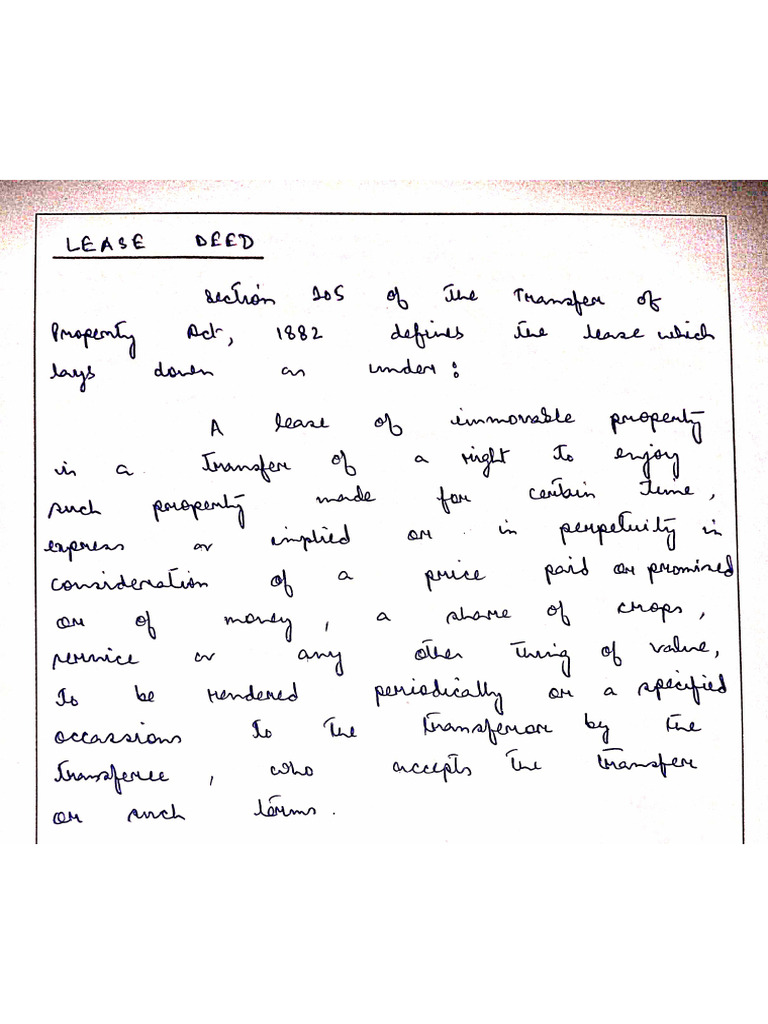 LEASE DEED
Section 105 of the Transfer of
Property Act, 1882 defines the lease which
lays down as under:
A lease of immovable property
is a transfer of a right to enjoy
such property made for certain time,
express or implied or in perpetuity in
consideration of a price paid or promised
or of money, a share of crops,
service or any other thing of value,
to be rendered periodically or a specified
occassions to the transferor by the
transferee, who accepts the transfer
or such terms.